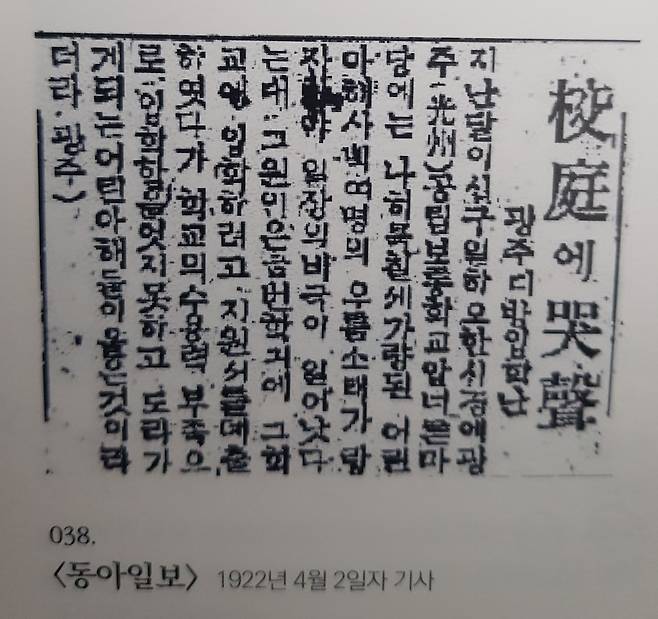 校庭에 哭聲
광주디방입학난
지난달이십구일하오한시경에광
주(光州)공립보통학교압너른마
당에는 나희륙칠세가량된 어린
아해사백여명의 우름소래가 랑
자하야 일장의비극이 일어낫다
는대 그원인은금번학긔에 그학
교에 입학하려고 지원서를뎨출
하엿다가 학교의수용력 부족으
로 입학허가엇지못하고 도라가
게되는어린아해들이우는것이라
더라(광주)
038.
〈동아일보〉 1922년 4월 2일자 기사